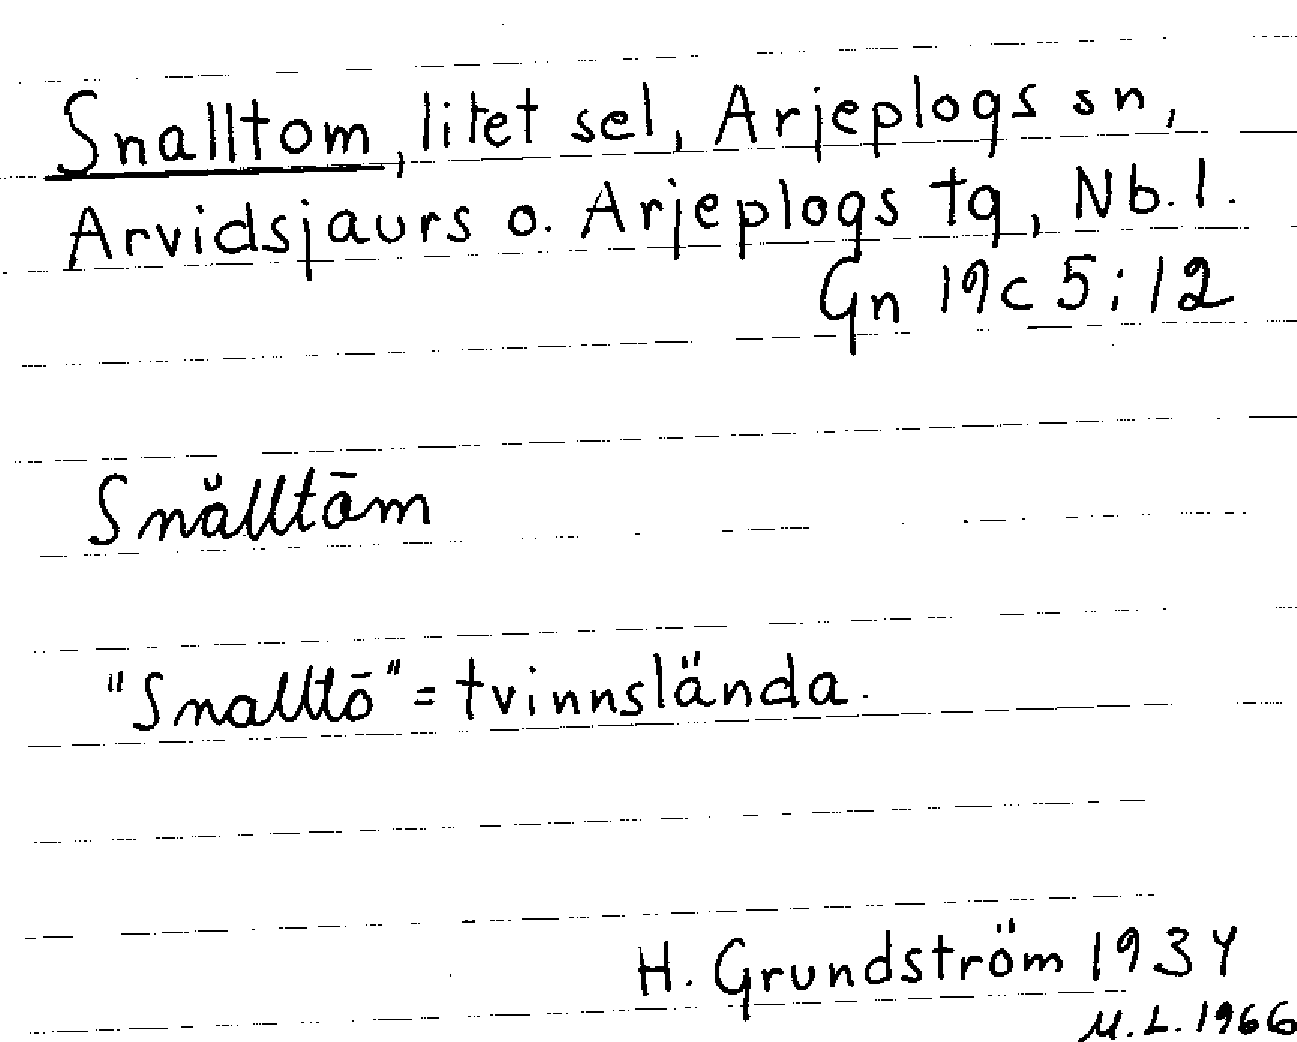 Snalltom, litet sel, Arjeplogs sn,
Arvidsjaurs o. Arjeplogs tg, Nb. l.
Gn 19c 5:12
Snălltōm
"Snalltō" = tvinnslända.
H. Grundström 1934
M. L. 1966